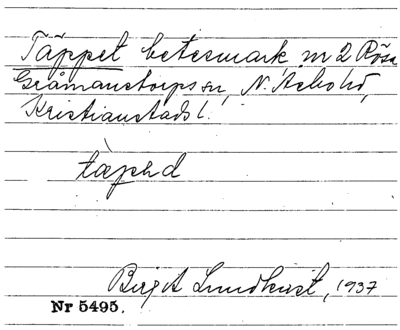 Täppet betesmark nr 2 Rösa
Gråmanstorps sn, N. Åsbo hd,
Kristianstads l.
täpəd
Birgit Lundkvist, 1937
Nr 5495.